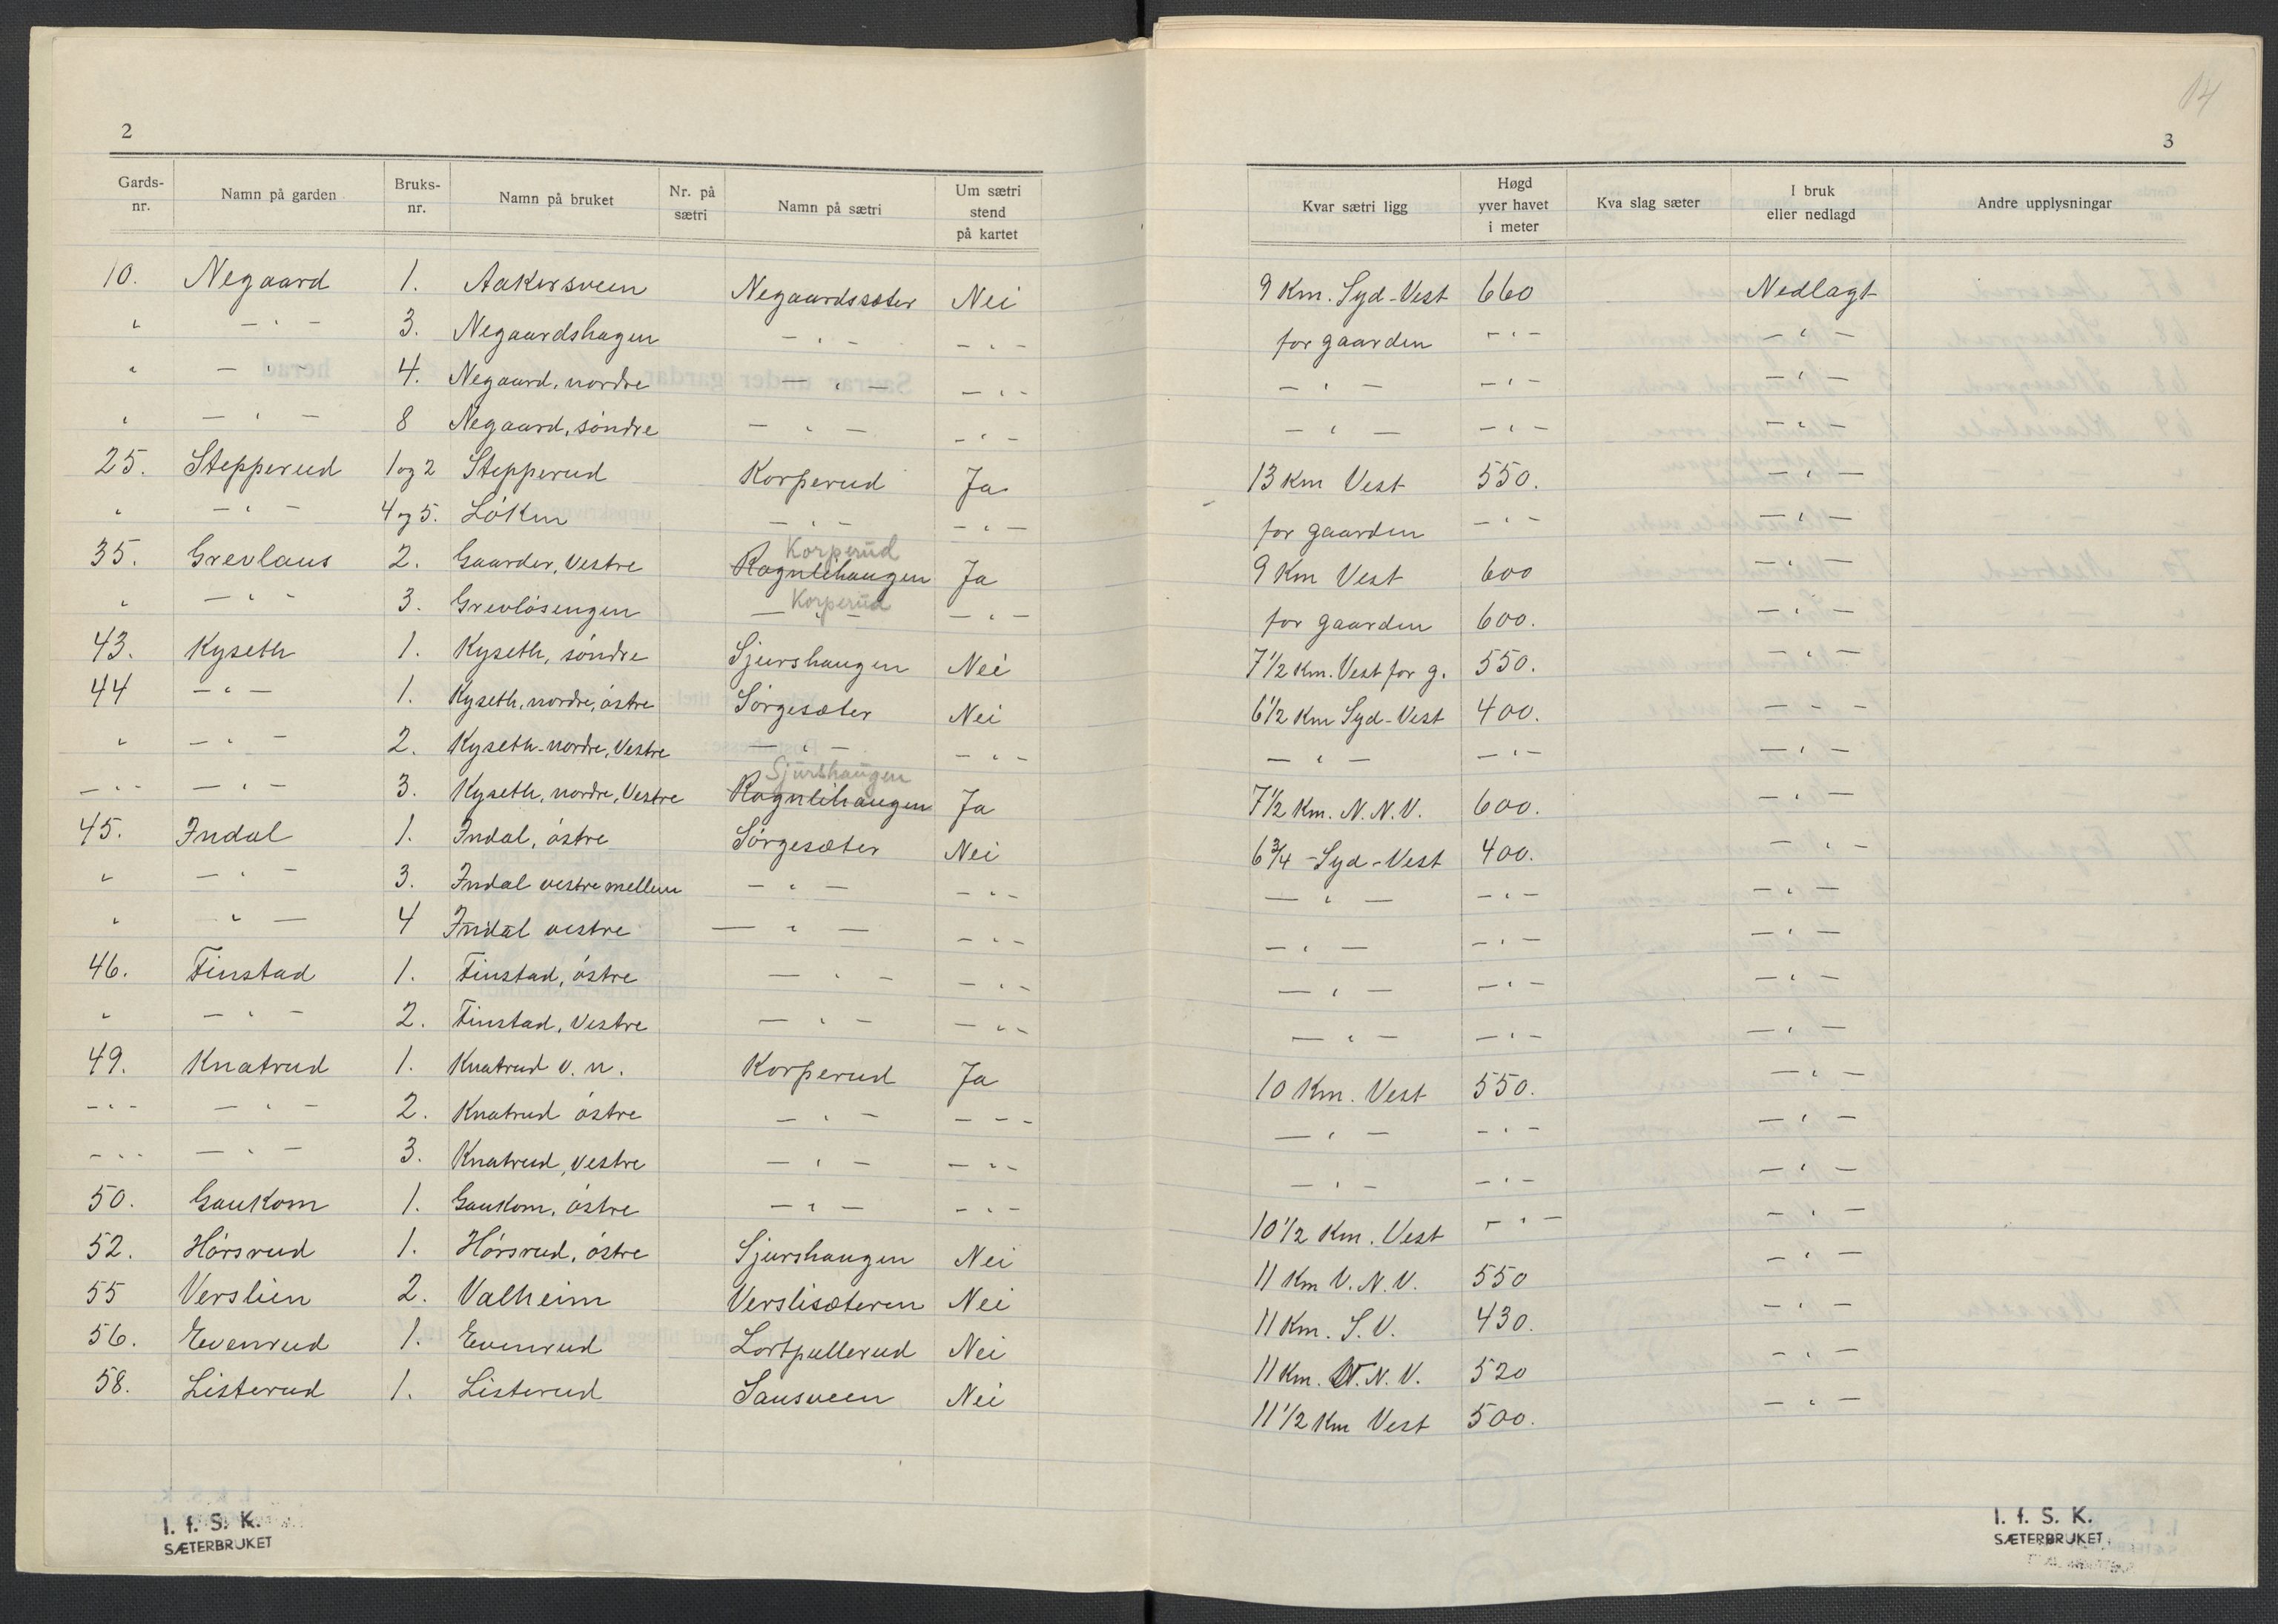 2
Gards-nr. Namn på garden Bruks-nr. Namn på bruket Nr. på sætri Namn på sætri Um sætri stend på kartet
10. Negaard 1. Aakersveen Negaardssæter Nei
" — " — 3. Negaardshagen — " — — " —
" — " — 4. Negaard, nordre — " — — " —
" — " — 8 Negaard, söndre — " — — " —
25. Stepperud 1 og 2 Stepperud Korperud Ja
" — " — 4 og 5. Löken — " — — " —
Korperud
35. Grevlaus 2. Gaarder, Vestre Rognlihaugen Ja
" — " — 3. Grevlösengen — " — Korperud — " —
43. Kyseth 1. Kyseth, söndre Sjurshaugen Nei
44 — " — 1. Kyseth, nordre, östre Sörgesæter Nei
" — " — 2. Kyseth-nordre, Vestre — " — — " —
Sjurshaugen
— " — — " — 3. Kyseth, nordre, Vestre Rognlihaugen Ja
45. Indal 1. Indal, östre Sörgesæter Nei
" — " — 3. Indal vestre mellem — " — — " —
" " — 4 Indal vestre — " — — " —
46. Finstad 1. Finstad, östre — " — — " —
" — " — 2. Finstad, Vestre — " — — " —
49. Knatrud 1. Knatrud v. n. Korperud Ja
— " — — " — 2. Knatrud östre — " — — — —
— " — — " — 3. Knatrud, vestre — " — — " —
50. Gaukom 1. Gaukom, östre — " — — " —
52. Hörsrud 1. Hörsrud, östre Sjurshaugen Nei
55 Verslien 2. Valheim Verslisæteren Nei
56. Evenrud 1. Evenrud Lortpullerud Nei
58. Listerud 1. Listerud Sausveen Nei
I. f. S. K.
SÆTERBRUKET
14
3
Kvar sætri ligg Høgd yver havet i meter Kva slag sæter I bruk eller nedlagd Andre upplysningar
9 Km. Syd-Vest 660 Nedlagt
for gaarden — " — — " —
— " — — " — — " —
— " — — " — — " —
13 Km Vest 550. — " —
for gaarden — " — — " —
9 Km Vest 600 — " —
for gaarden 600. — " —
7 1/2 Km. Vest for g. 550. — " —
6 1/2 Km Syd-Vest 400. — " —
— " — — " — — " —
7 1/2 Km. N. N. V. 600. — " —
6 3/4 - Syd-Vest 400. — " —
— " — — " — — " —
— " — — " — — " —
— " — — " — — " —
— " — — " — — " —
10 Km. Vest 550. — " —
— " — — " — — " —
— " — — " — — " —
10 1/2 Km. Vest — " — — " —
11 Km V. N. V. 550 — " —
11 Km. S. V. 430. — " —
11 Km. V. N. V. 520 — " —
11 1/2 Km Vest 500. — " —
I. f. S. K.
SÆTERBRUKET